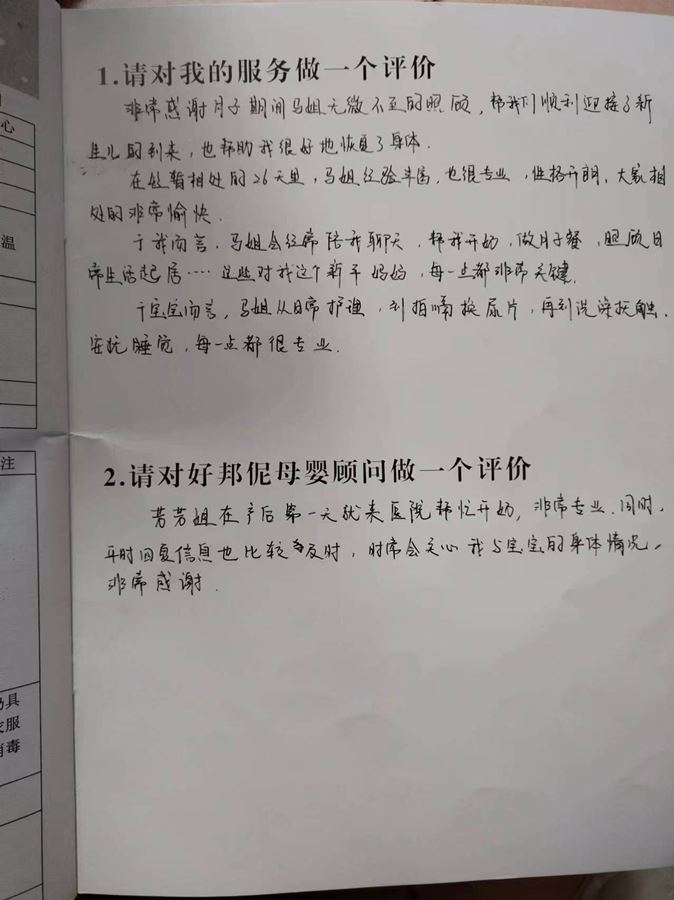 心
温
注
乃具
衣服
消毒
1.请对我的服务做一个评价
非常感谢月子期间马姐无微不至的照顾，帮我们顺利迎接了新
生儿的到来，也帮助我很好地恢复了身体.
在短暂相处的26天里，马姐经验丰富，也很专业，性格开朗，大家相
处的非常愉快.
于我而言，马姐会经常陪我聊天，帮我开奶，做月子餐，照顾日
常生活起居……这些对我这个新手妈妈，每一点都非常关键.
于宝宝而言，马姐从日常护理，到拍嗝换尿片，再到洗澡抚触，
安抚睡觉，每一点都很专业.
2.请对好邦伲母婴顾问做一个评价
芳芳姐在产后第一天就来医院帮忙开奶，非常专业.同时，
平时回复信息也比较及时，时常会关心我与宝宝的身体情况，
非常感谢.